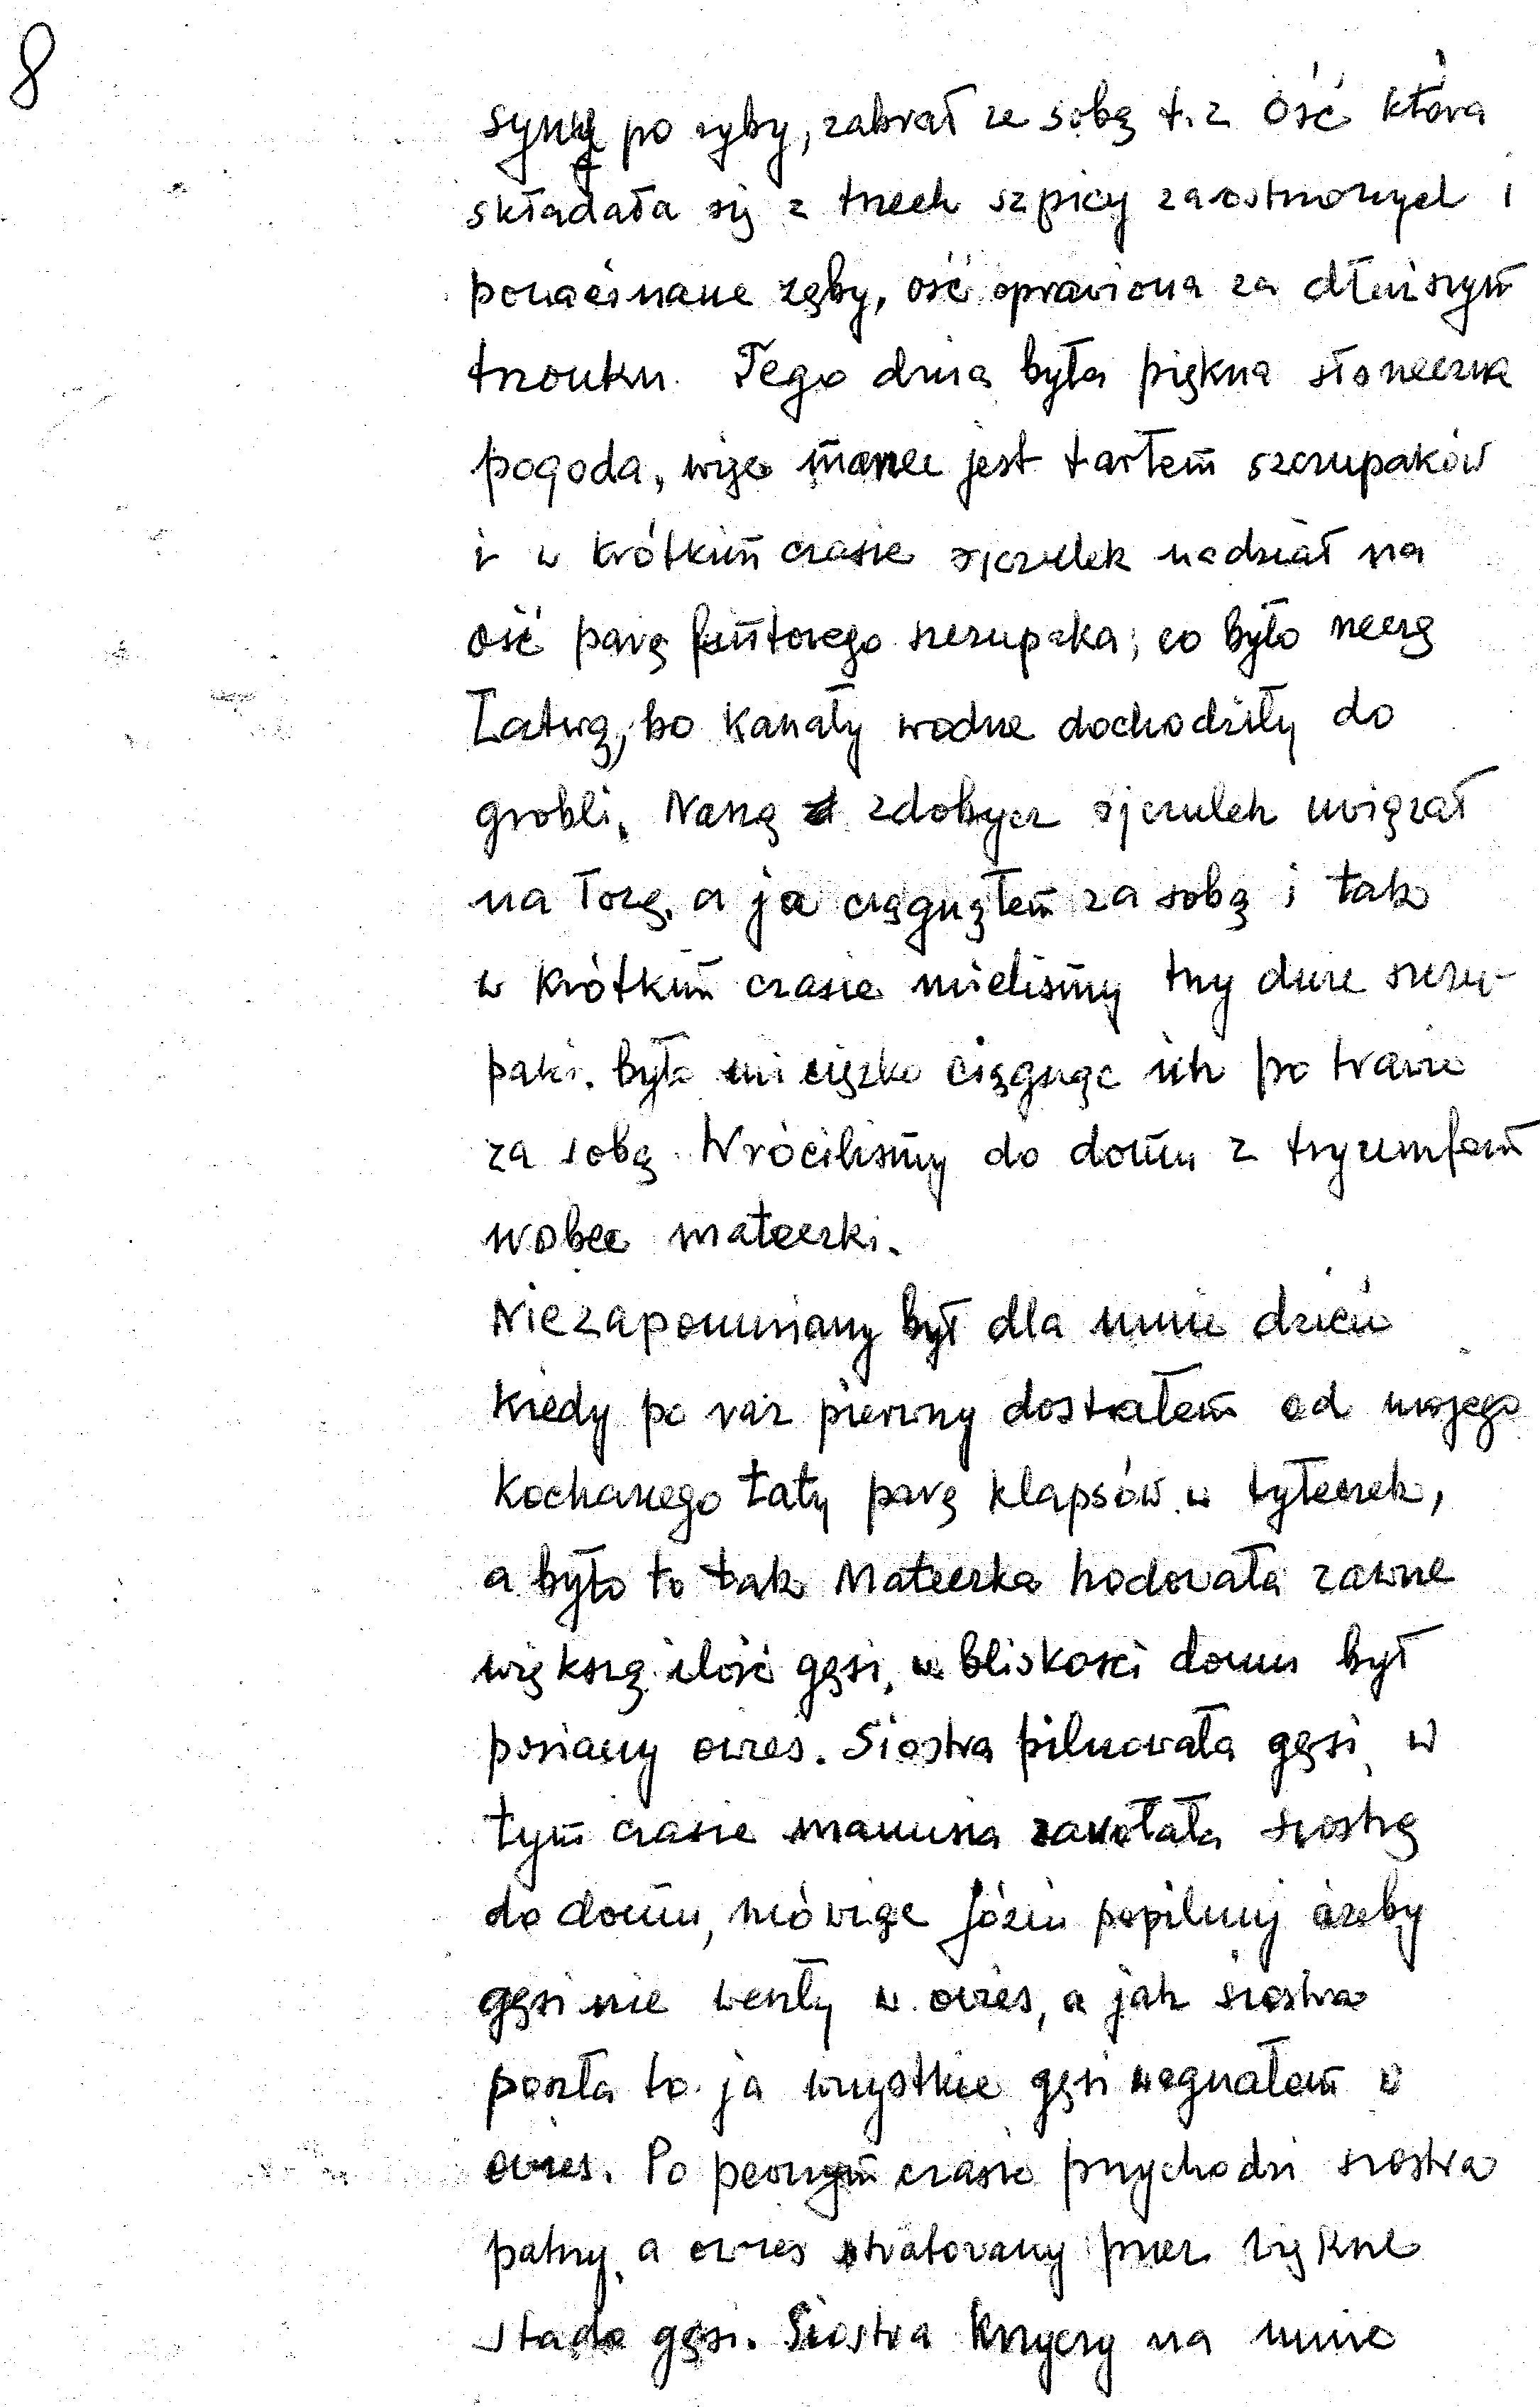 8
syny po ryby, zabrał ze sobą t.z ość która
składała się z trzech szpicy zaostrzonych i
ponacinane zęby, ość oprawiona za dłuższym
trzonku. Tego dnia była piękna słoneczna
pogoda, więc marzec jest tartem szczupaków
i w krótkim czasie ojczulek nadział na
ość parę funtowego szczupaka; co było rzeczą
Łatwą, bo kanały wodne dochodziły do
grobli, Naszą zdobycz ojczulek uwiązał
na łozę, a ja ciągnąłem za sobą i tak
w krótkim czasie mieliśmy trzy duże szczu-
paki. było mi ciężko ciągnąc ich po trawie
za sobą. Wróciliśmy do domu z tryumfem
wobec mateczki.
Niezapomniany był dla mnie dzień
kiedy po raz pierwszy dostałem od mojego
kochanego taty parę klapsów w tyłeczek,
a było to tak Mateczka hodowała zawsze
większą ilość gęsi, w bliskości domu był
posiany owies. Siostra pilnowała gęsi, w
tym czasie mamusia zawołała siostrę
do domu, mówiąc Józiu popilnuj ażeby
gęsi nie weszły w owies, a jak siostra
poszła to ja wszystkie gęsi wegnałem w
owies. Po pewnym czasie przychodzi siostra
patrzy, a owies stratowany przez większe
stado gęsi. Siostra krzyczy na mnie